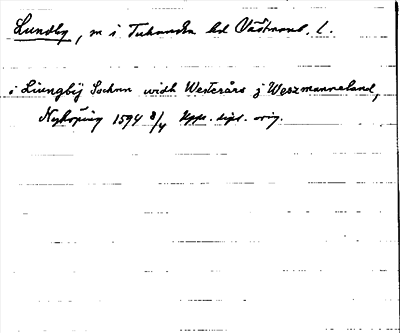 Lundby, m i Tuhundra hd Västmanl. l.
i Liungbij Sochnn widh Westerårs j Weszmanneland,
Nyköping 1594 8/4 Upps. dipl. orig.